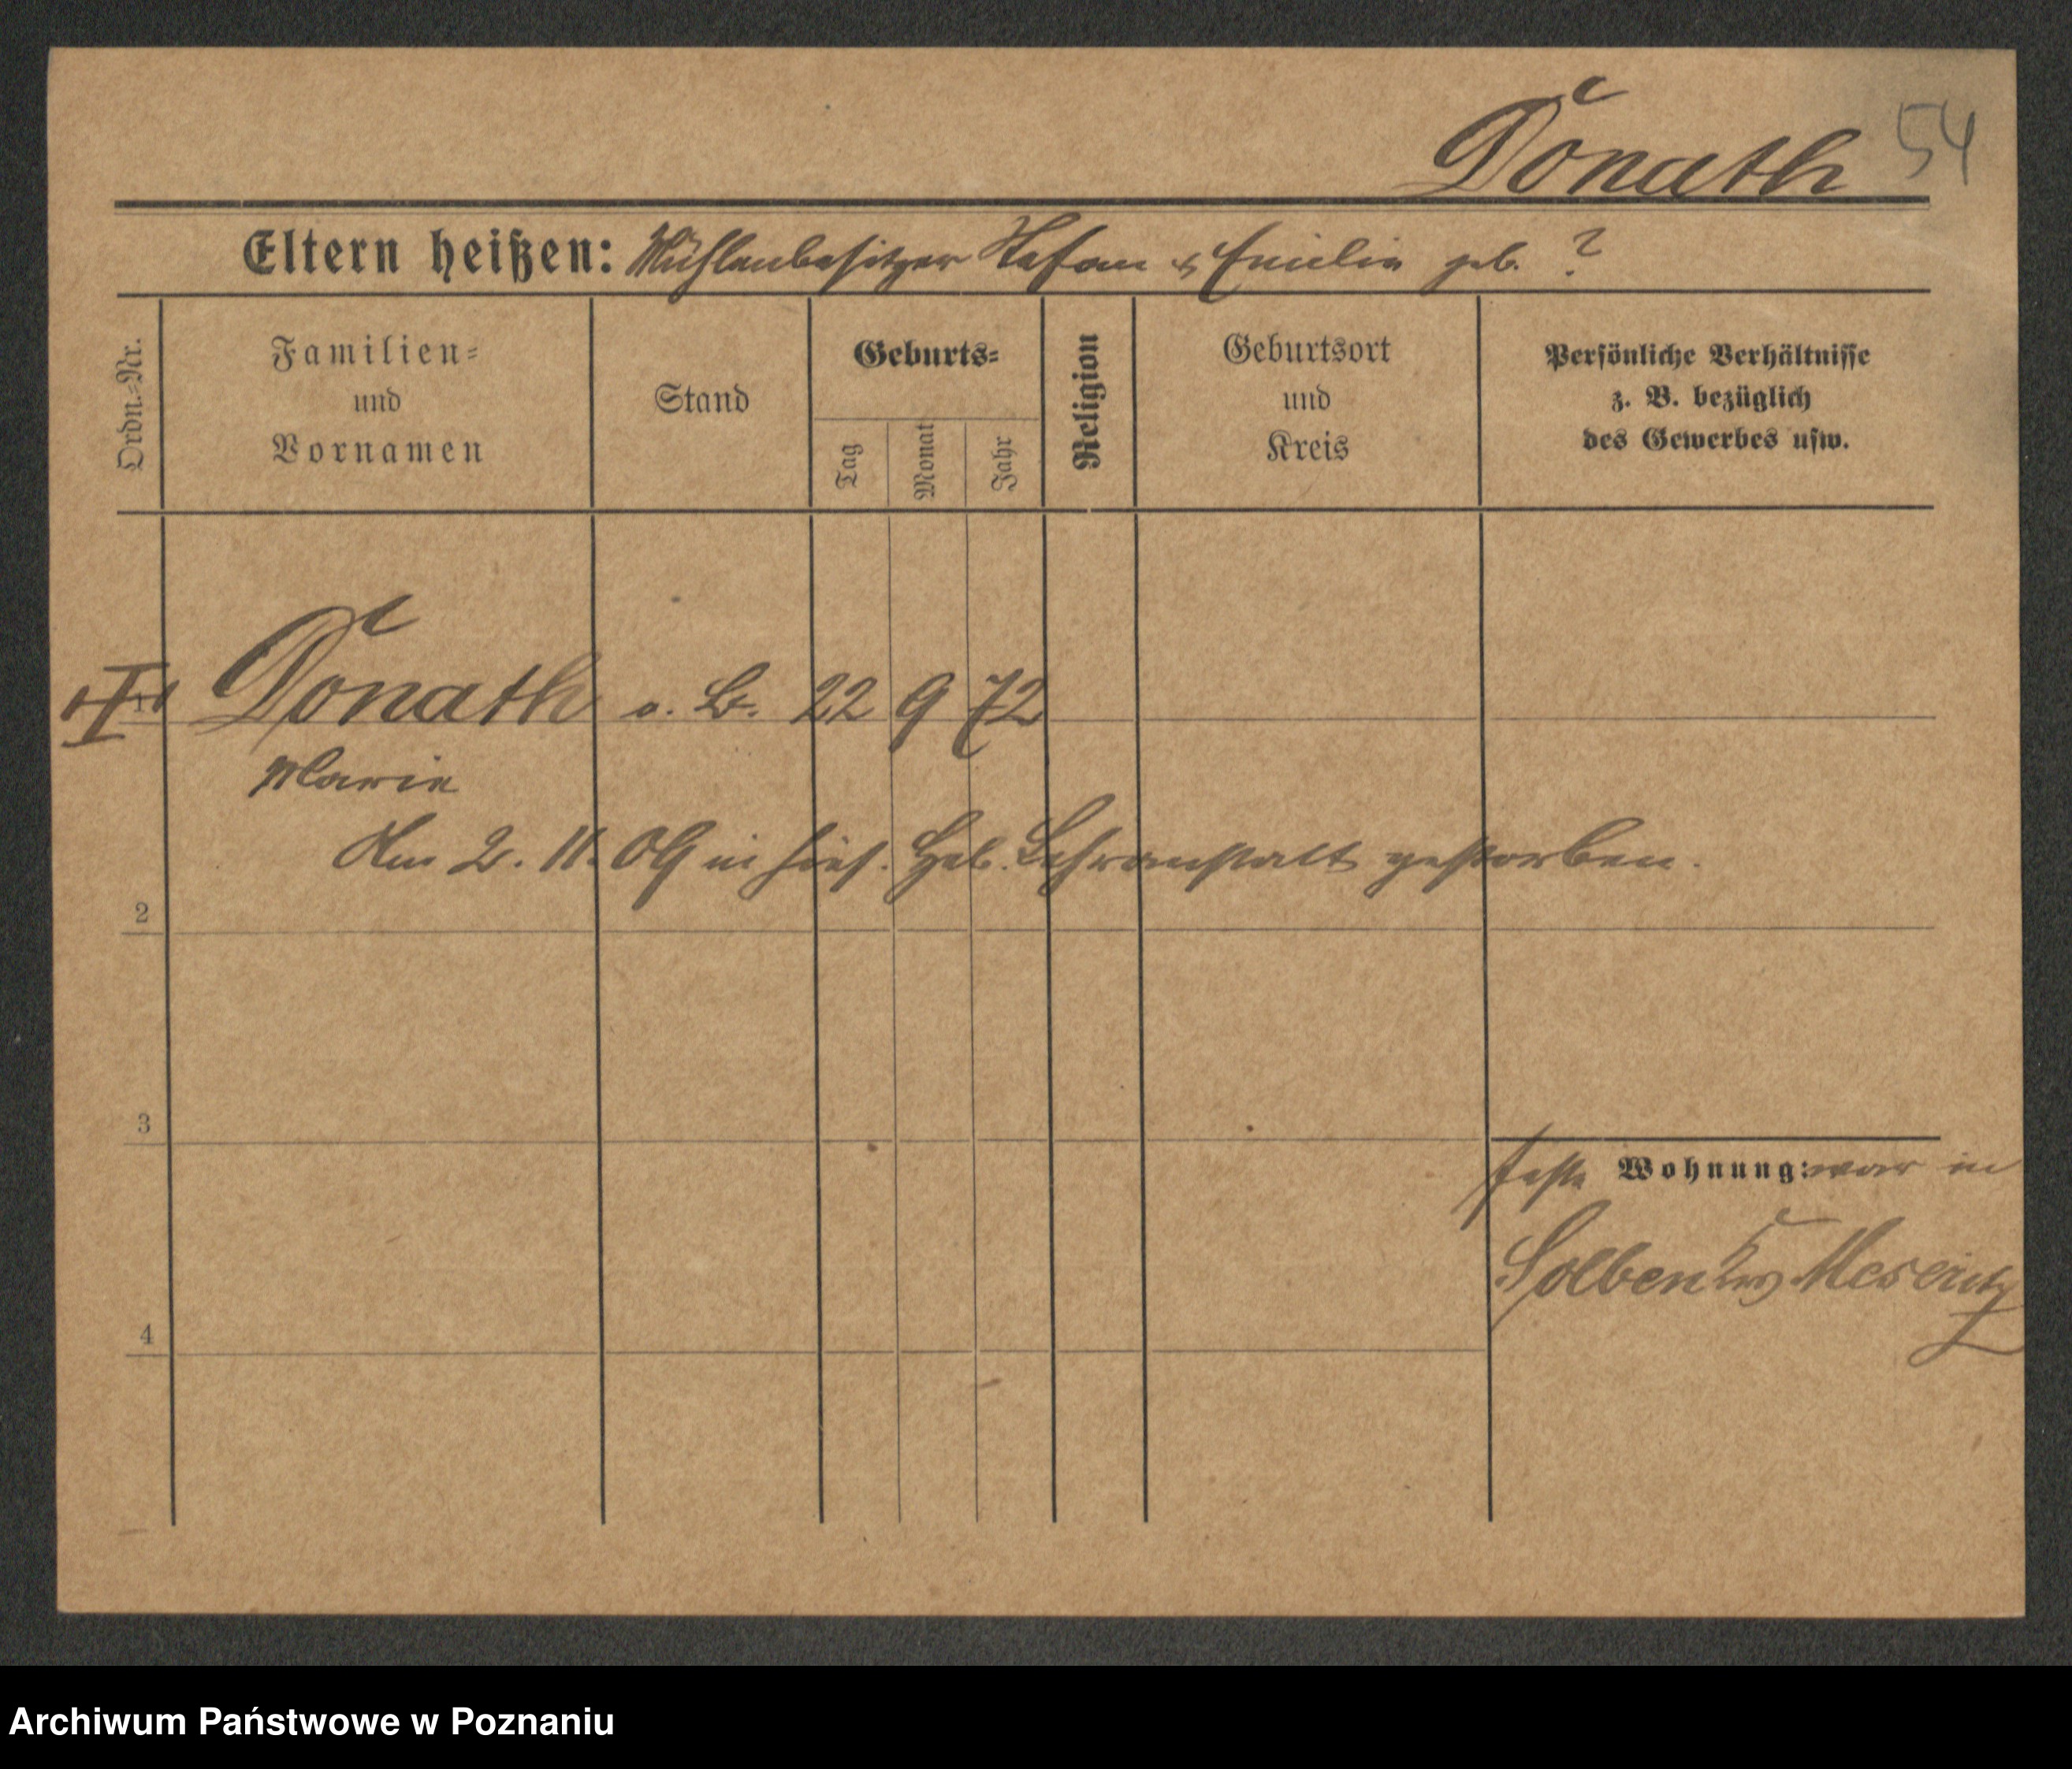 Donath 54
Eltern heißen: Mühlenbesitzer Stefan & Emilie geb. ?
Ordn.-Nr.
Familien-
und
Vornamen
Stand
Geburts-
Tag
Monat
Jahr
Religion
Geburtsort
und
Kreis
Persönliche Verhältnisse
z. B. bezüglich
des Gewerbes usw.
1 Donath o. B. 22 9 72
Marie
Am 2. 11. 09 in hies. Heb. Lehranstalt gestorben.
2
3
feste Wohnung: war in
Solben Krs Meseritz
4
Archiwum Państwowe w Poznaniu